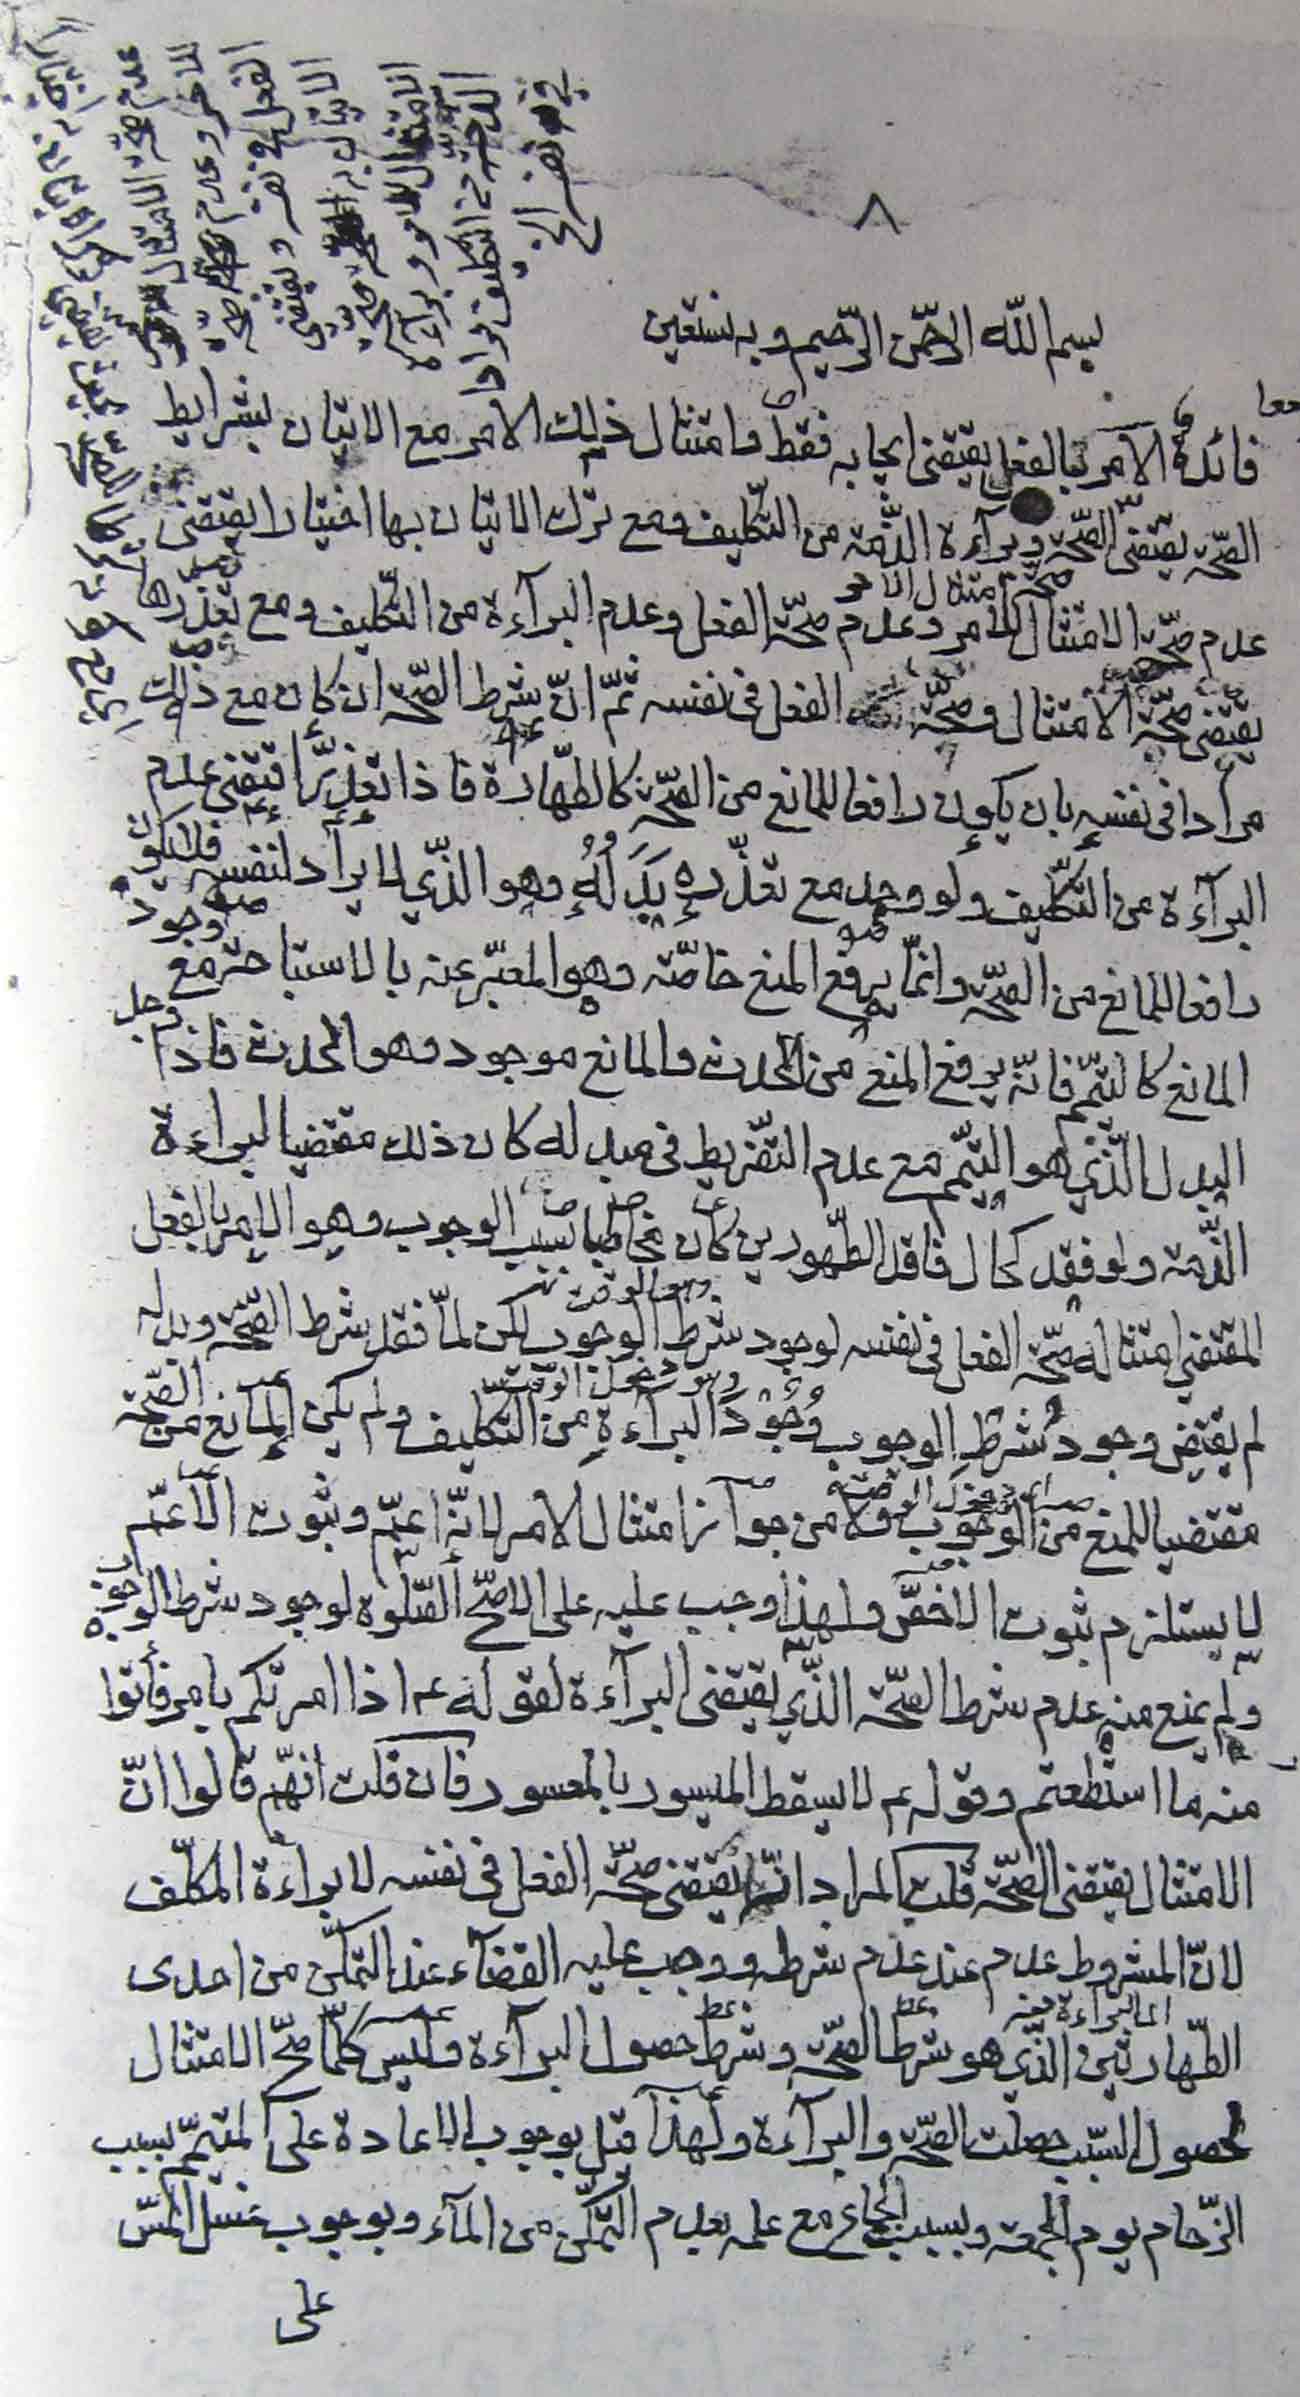 ٨
بسم الله الرحمن الرحيم وبه نستعين
فائدة الامر بالفعل يقتضى ايجابه فقط وامتثال ذلك الامر مع الاتيان بشرايط
الصّحّة يقتضى الصّحّة وبرآءة الذّمّة من التّكليف ومع ترك الاتيان بها اختيارا يقتضى
عدم صحّة الامتثال للامر وعدم صحّة الفعل وعدم البرآءة من التّكليف ومع تعذّرها
يقتضى صحّة الامتثال وصحّة الفعل فى نفسه ثمّ انّ شرط الصّحّة ان كان مع ذلك
مرادا فى نفسه بان يكون رافعا للمانع من الصّحّة كالطّهارة فاذا تعذّر اقتضى عدم
البرآءة من التّكليف ولو وجد مع تعذّره بَدَلُهُ وهو الذّي لا يراد لنفسه فلا يكون
رافعا للمانع من الصّحّة وانّما يرفع المنع خاصّة وهو المعبّر عنه بالاستباحة مع وجود
المانع كالتيمّم فانّه يرفع المنع من الحدث والمانع موجود وهو الحدث فاذا وجد
البدل الّذي هو التيمّم مع عدم التّفريط فى مبدله كان ذلك مقتضيا لبراءة
الذّمّة ولو فقد كحال فاقد الطّهورين كان مخاطبا بسبب الوجوب وهو الامر بالفعل
المقتضى امتثاله صحّة الفعل فى نفسه لوجود شرط الوجوب وهو الوقت لكن لمّا فقد شرط الصّحّة وبدله
لم يقتض وجود شرط الوجوب وهو دخول الوقت وُجُودَ البرآءةِ من التّكليف ولم يكن المانع من الصّحّة
مقتضيا للمنع من الوجوب ولا من جواز امتثال الامر لانّه اعمّ وثبوت الاعمّ
لا يستلزم ثبوت الاخصّ ولهذا وجب عليه على الاصحّ الصّلوة لوجود شرط الوجوب
ولم يمنع منه عدم شرط الصّحّة الذّي يقتضى البرآءة لقوله عم اذا امرتكم بامر فأتوا
منه ما استطعتم وقوله عم لا يسقط الميسور بالمعسور فان قلت انّهم قالوا انّ
الامتثال يقتضى الصّحّة قلت المراد انّه يقتضى صحّة الفعل فى نفسه لا براءة المكلّف
لانّ المشروط عدم عند عدم شرطه ووجب عليه القضآء عند التمكّن من احدى
الطّهارتين الذّي هو شرط الصّحّة وشرط حصول البرآءة وليس كلّما صحّ الامتثال
لحصول السّبب حصلت الصّحّة والبرآءة ولهذا قيل بوجوب الاعادة على المتيمّم بسبب
الزّحام يوم الجمعة وبسبب الجماع مع علمه بعدم التمكّن من المآء وبوجوب غسل المسّ
على